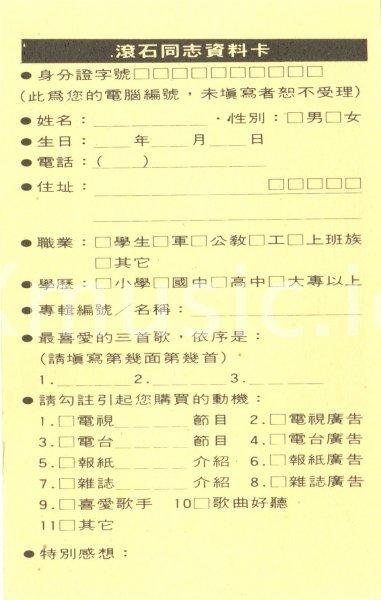 .滾石同志資料卡
●身分證字號□□□□□□□□□□
(此為您的電腦編號，未填寫者恕不受理)
●姓名：__________．性別：□男□女
●生日：____年____月____日
●電話：(　　)__________
●住址：__________□□□□□
●職業：□學生□軍□公教□工□上班族
□其它
●學歷：□小學□國中□高中□大專以上
●專輯編號／名稱：__________
●最喜愛的三首歌，依序是：
(請填寫第幾面第幾首)
1.________2.________3.________
●請勾註引起您購買的動機：
1.□電視________節目 2.□電視廣告
3.□電台________節目 4.□電台廣告
5.□報紙________介紹 6.□報紙廣告
7.□雜誌________介紹 8.□雜誌廣告
9.□喜愛歌手 10□歌曲好聽
11□其它
●特別感想：